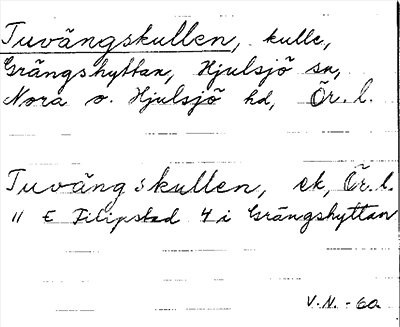 Tuvängskullen, kulle,
Grängshyttan, Hjulsjö sn,
Nora o. Hjulsjö hd, Ör. l.
Tuvängskullen, ek, Ör. l.
11 E Filipstad 4 i Grängshyttan
V.N. - 60